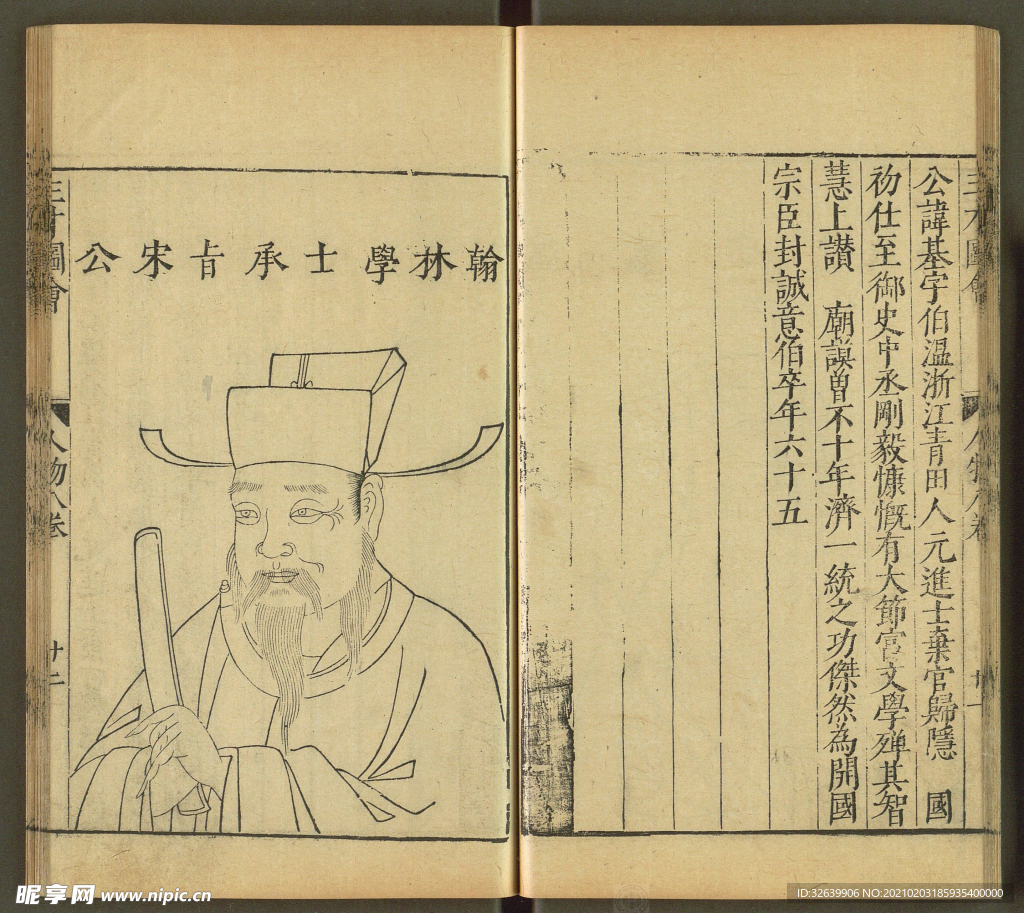 三才圖會
人物八卷
廿一
公諱基字伯溫浙江青田人元進士棄官歸隱 國
初仕至御史中丞剛毅慷慨有大節宮文學殫其智
慧上讃 廟謨曾不十年濟一統之功傑然為開國
宗臣封誠意伯卒年六十五
翰林學士承旨宋公
三才圖會
人物八卷
廿二
昵享网 www.nipic.cn
ID:32639906 NO:20210203185935400000